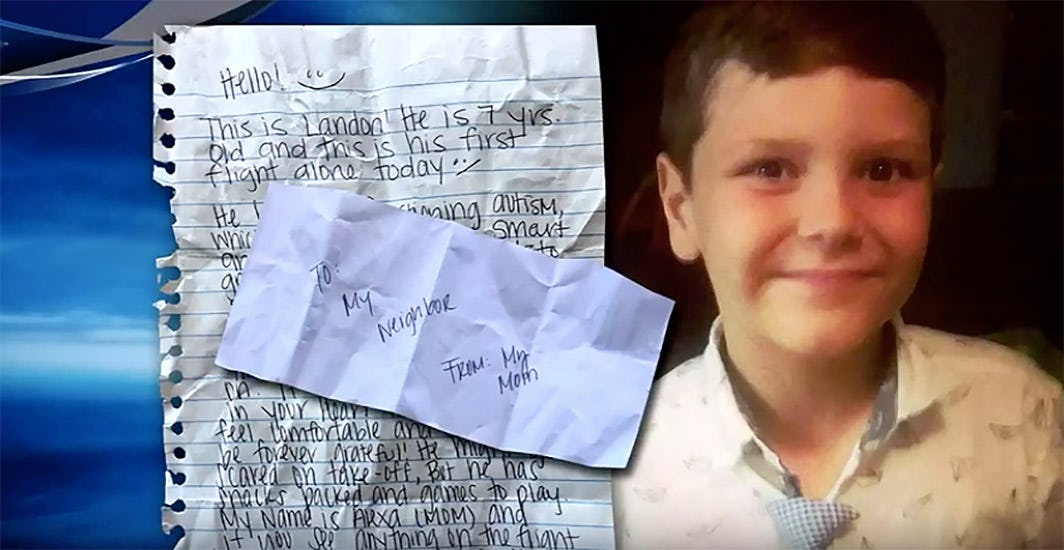 Hello!
This is Landon! He is 7 yrs.
old and this is his first
flight alone today
He autism,
smart
To:
My
Neighbor
From: My
Mom
in your hear
feel comfortable and
be forever grateful! He
scared on take-off, But he has
snacks packed and games to play.
My Name is Alexa (Mom) and
if you see anything on the flight